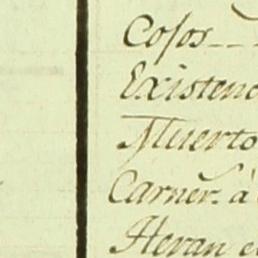 Cosos
Existenc
Muerto
Carner. à
Heran e